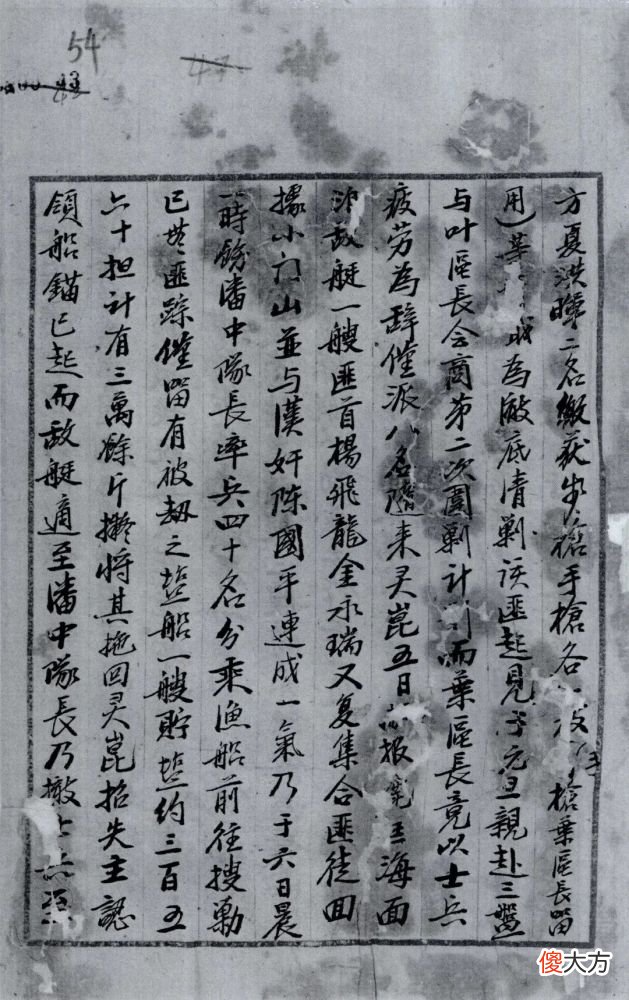 54
方夏洪曄二名繳获步槍手槍各一枝槍葉區長畱
用為敝底清剿该匪起見于元旦親赴三盤
与叶區長会商第二次圍剿計而葉區長竟以士兵
疲劳為辞僅派八名隨来灵崑五日报海面
敌艇一艘匪首楊飛龍金永瑞又复集合匪徒回
據小门山並与漢奸陈國平連成一氣乃于六日晨
一時飭潘中隊長率兵四十名分乘渔船前往搜剿
已無匪踪僅畱有被劫之盐船一艘貯盐約三百五
六十担計有三萬餘斤擬將其拖回灵崑招失主認
領船錨已起而敌艇適至潘中隊長乃撤
傻大方